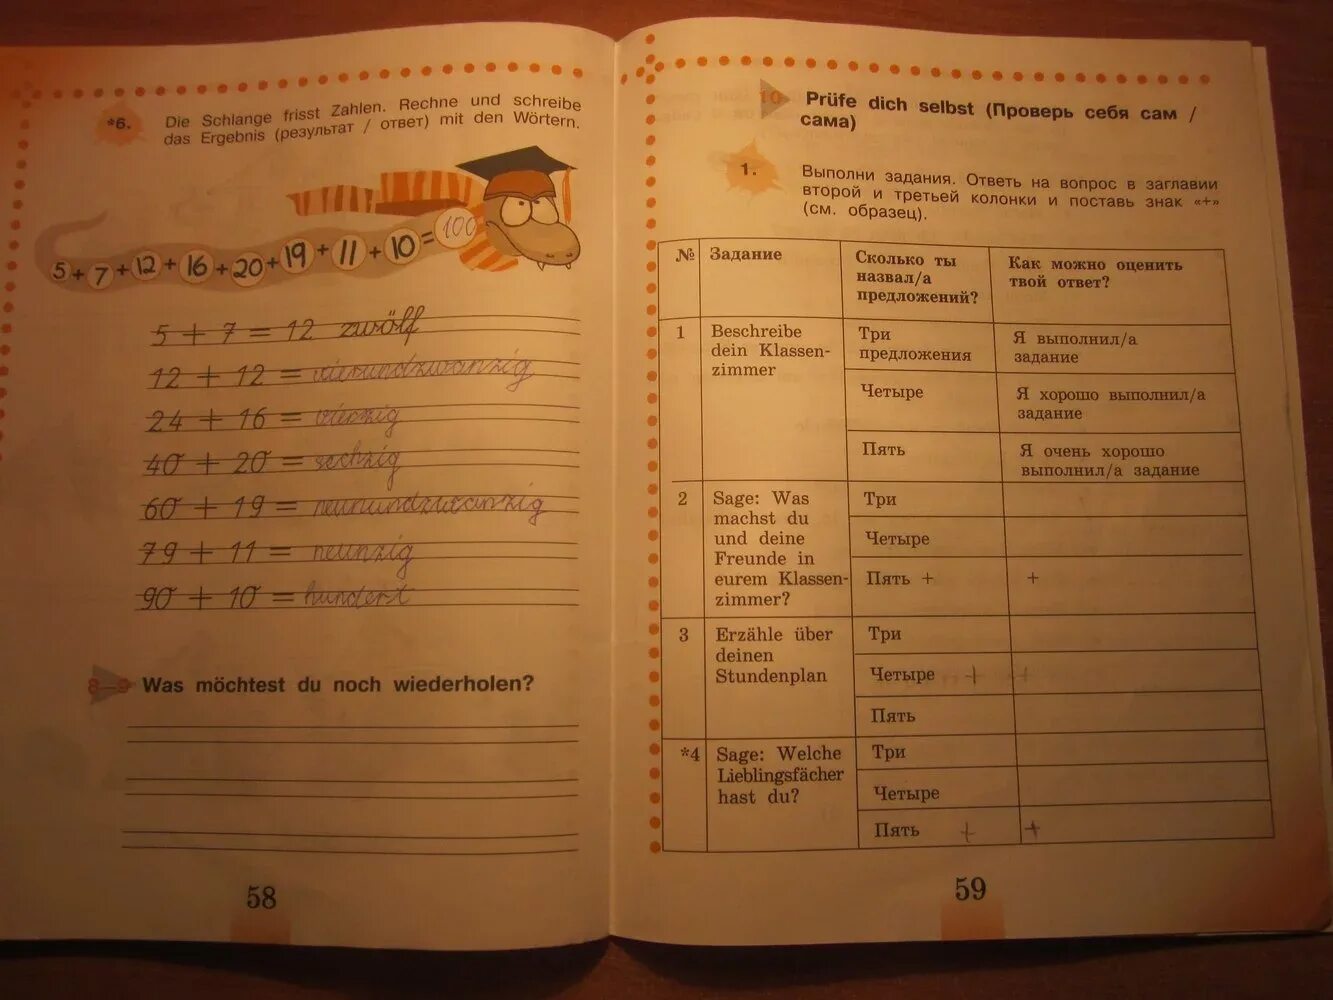 *6.
Die Schlange frisst Zahlen. Rechne und schreibe
das Ergebnis (результат / ответ) mit den Wörtern.
5 + 7 + 12 + 16 + 20 + 19 + 11 + 10 = 100
5 + 7 = 12 zwölf
12 + 12 = vierundzwanzig
24 + 16 = vierzig
40 + 20 = sechzig
60 + 19 = neunundzwanzig
79 + 11 = neunzig
90 + 10 = hundert
8–9 Was möchtest du noch wiederholen?
58
10 Prüfe dich selbst (Проверь себя сам /
сама)
1.
Выполни задания. Ответь на вопрос в заглавии
второй и третьей колонки и поставь знак «+»
(см. образец).
№ Задание Сколько ты назвал/а предложений? Как можно оценить твой ответ?
1 Beschreibe dein Klassen-
zimmer
Три предложения Я выполнил/а задание
Четыре Я хорошо выполнил/а задание
Пять Я очень хорошо выполнил/а задание
2 Sage: Was
machst du
und deine
Freunde in
eurem Klassen-
zimmer?
Три
Четыре
Пять + +
3 Erzähle über
deinen
Stundenplan
Три
Четыре + +
Пять
*4 Sage: Welche
Lieblingsfächer
hast du?
Три
Четыре
Пять + +
59